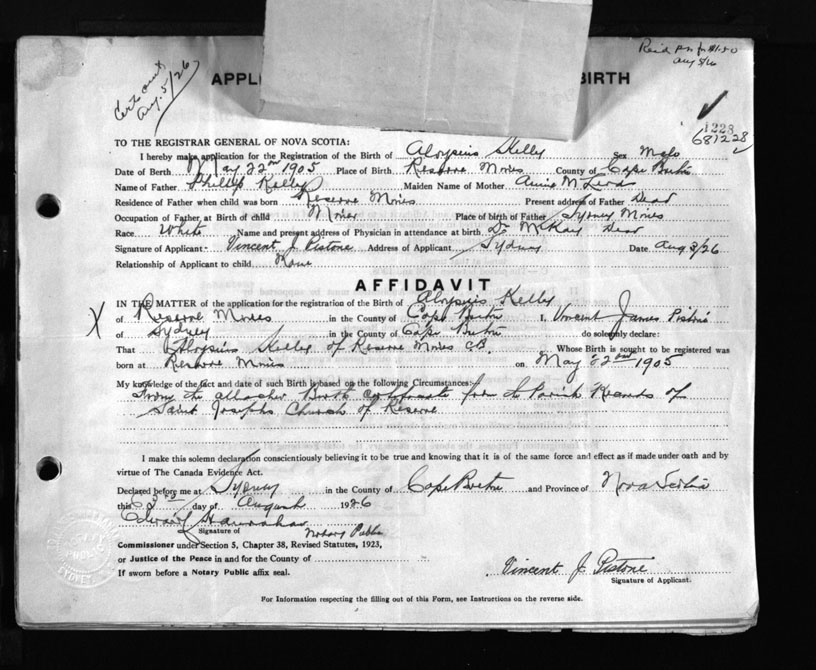 Reid
$1.50
Aug 5/26
Cert sent
Aug. 5/26
APPLI
BIRTH
1228
681228
TO THE REGISTRAR GENERAL OF NOVA SCOTIA:
I hereby make application for the Registration of the Birth of Aloysius Kelly Sex Male
Date of Birth May 22nd 1905 Place of Birth Reserve Mines County of Cape Breton
Name of Father Phillip Kelly Maiden Name of Mother Annie McLeod
Residence of Father when child was born Reserve Mines Present address of Father Dead
Occupation of Father at Birth of child Miner Place of birth of Father Sydney Mines
Race White Name and present address of Physician in attendance at birth Dr McKay Dead
Signature of Applicant- Vincent J. Pistone Address of Applicant Sydney Date Aug 3/26
Relationship of Applicant to child None
AFFIDAVIT
IN THE MATTER of the application for the registration of the Birth of Aloysius Kelly
X of Reserve Mines in the County of Cape Breton I, Vincent James Pistone
of Sydney in the County of Cape Breton do solemnly declare:
That Aloysius Kelly of Reserve Mines C.B. Whose Birth is sought to be registered was
born at Reserve Mines on May 22nd 1905
My knowledge of the fact and date of such Birth is based on the following Circumstances:-
From the attached Birth certificate from the Parish Records of
Saint Josephs Church of Reserve
I make this solemn declaration conscientiously believing it to be true and knowing that it is of the same force and effect as if made under oath and by
virtue of The Canada Evidence Act.
Declared before me at Sydney in the County of Cape Breton and Province of Nova Scotia
this day of August 1926
Edward
Signature of Notary Public
Commissioner under Section 5, Chapter 38, Revised Statutes, 1923,
or Justice of the Peace in and for the County of
If sworn before a Notary Public affix seal.
Vincent J. Pistone
Signature of Applicant.
For Information respecting the filling out of this Form, see Instructions on the reverse side.